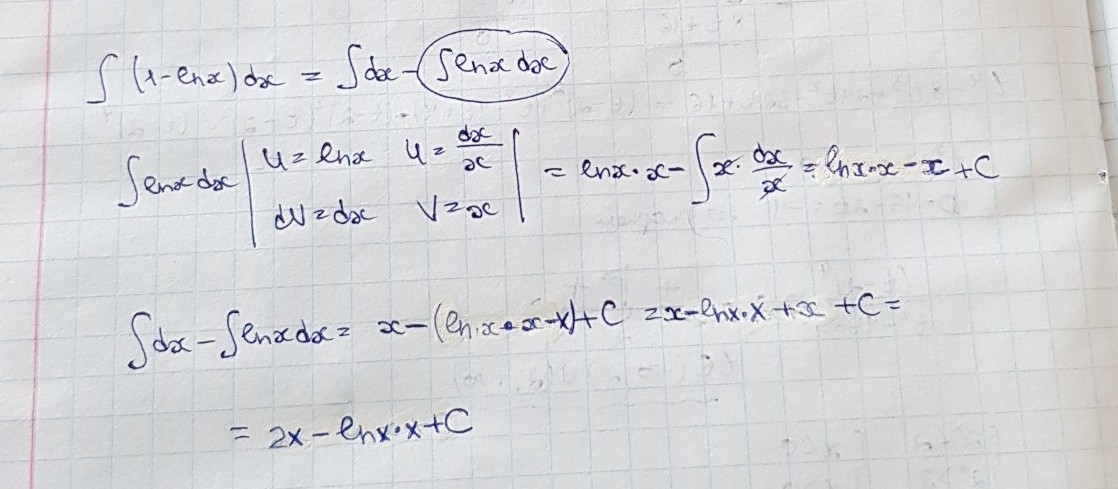 ∫(1-lnx)dx = ∫dx - ∫lnx dx
∫lnx dx | u = lnx u = dx/x dV = dx V = x | = lnx·x - ∫x·dx/x = lnx·x - x + C
∫dx - ∫lnxdx = x - (ln·x·x-x)+C = x - lnx·x + x + C =
= 2x - lnx·x + C